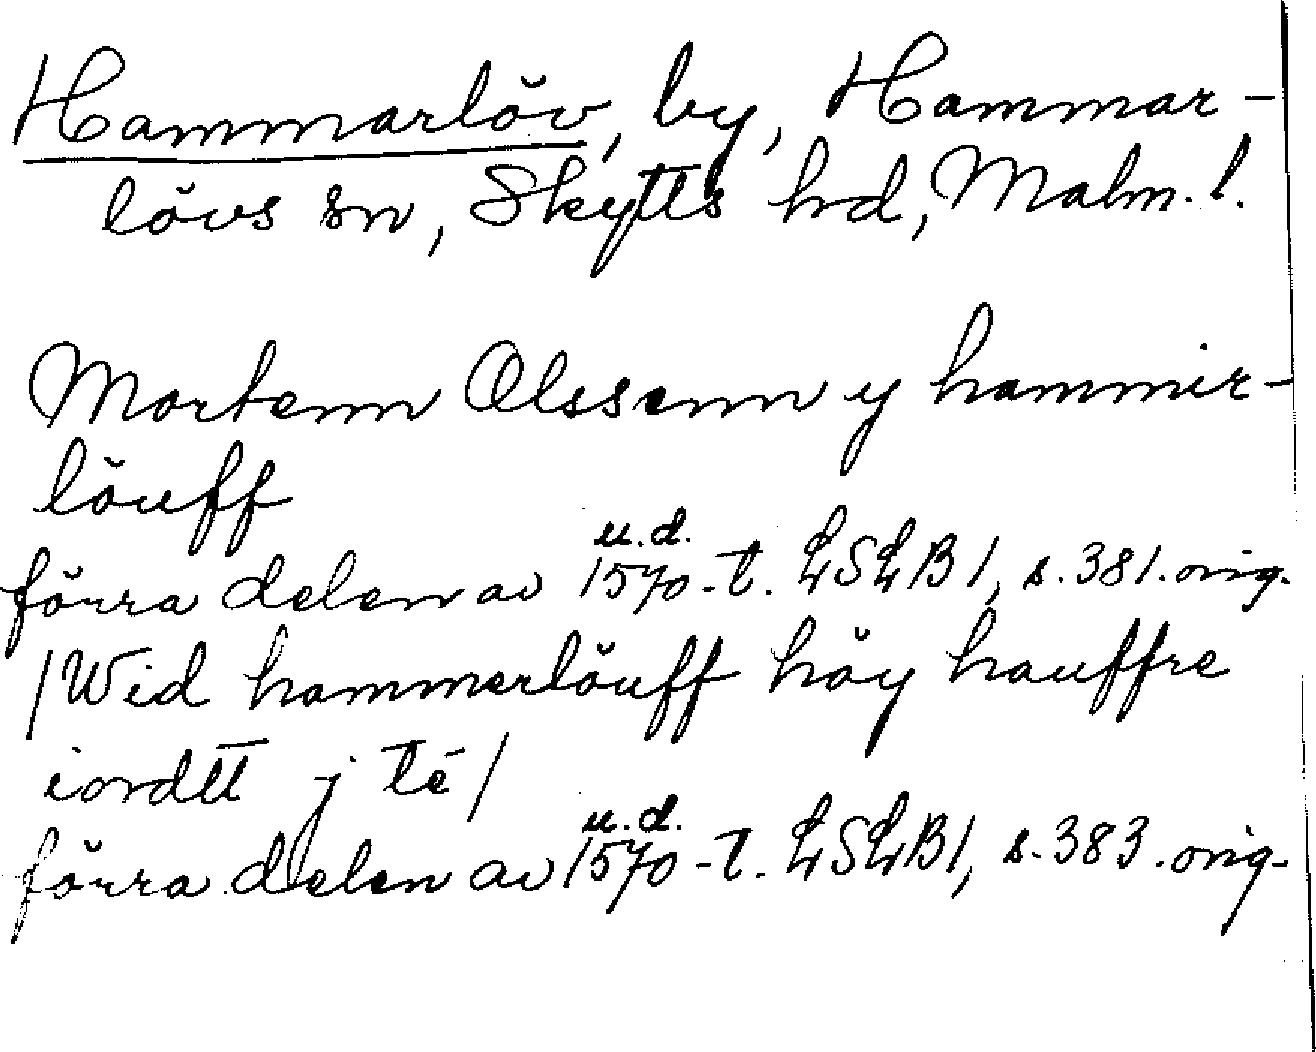 Hammarlöv, by, Hammar-
lövs sn, Skytts hd, Malm. l.
Mortenn Olssenn y hammer-
löuff
u.d.
förra delen av 1570-t. LSLB1, s. 381. orig.
/Wid hammerlöuff höy hauffre
iordtt j té/
u.d.
förra delen av 1570-t. LSLB1, s. 383. orig.